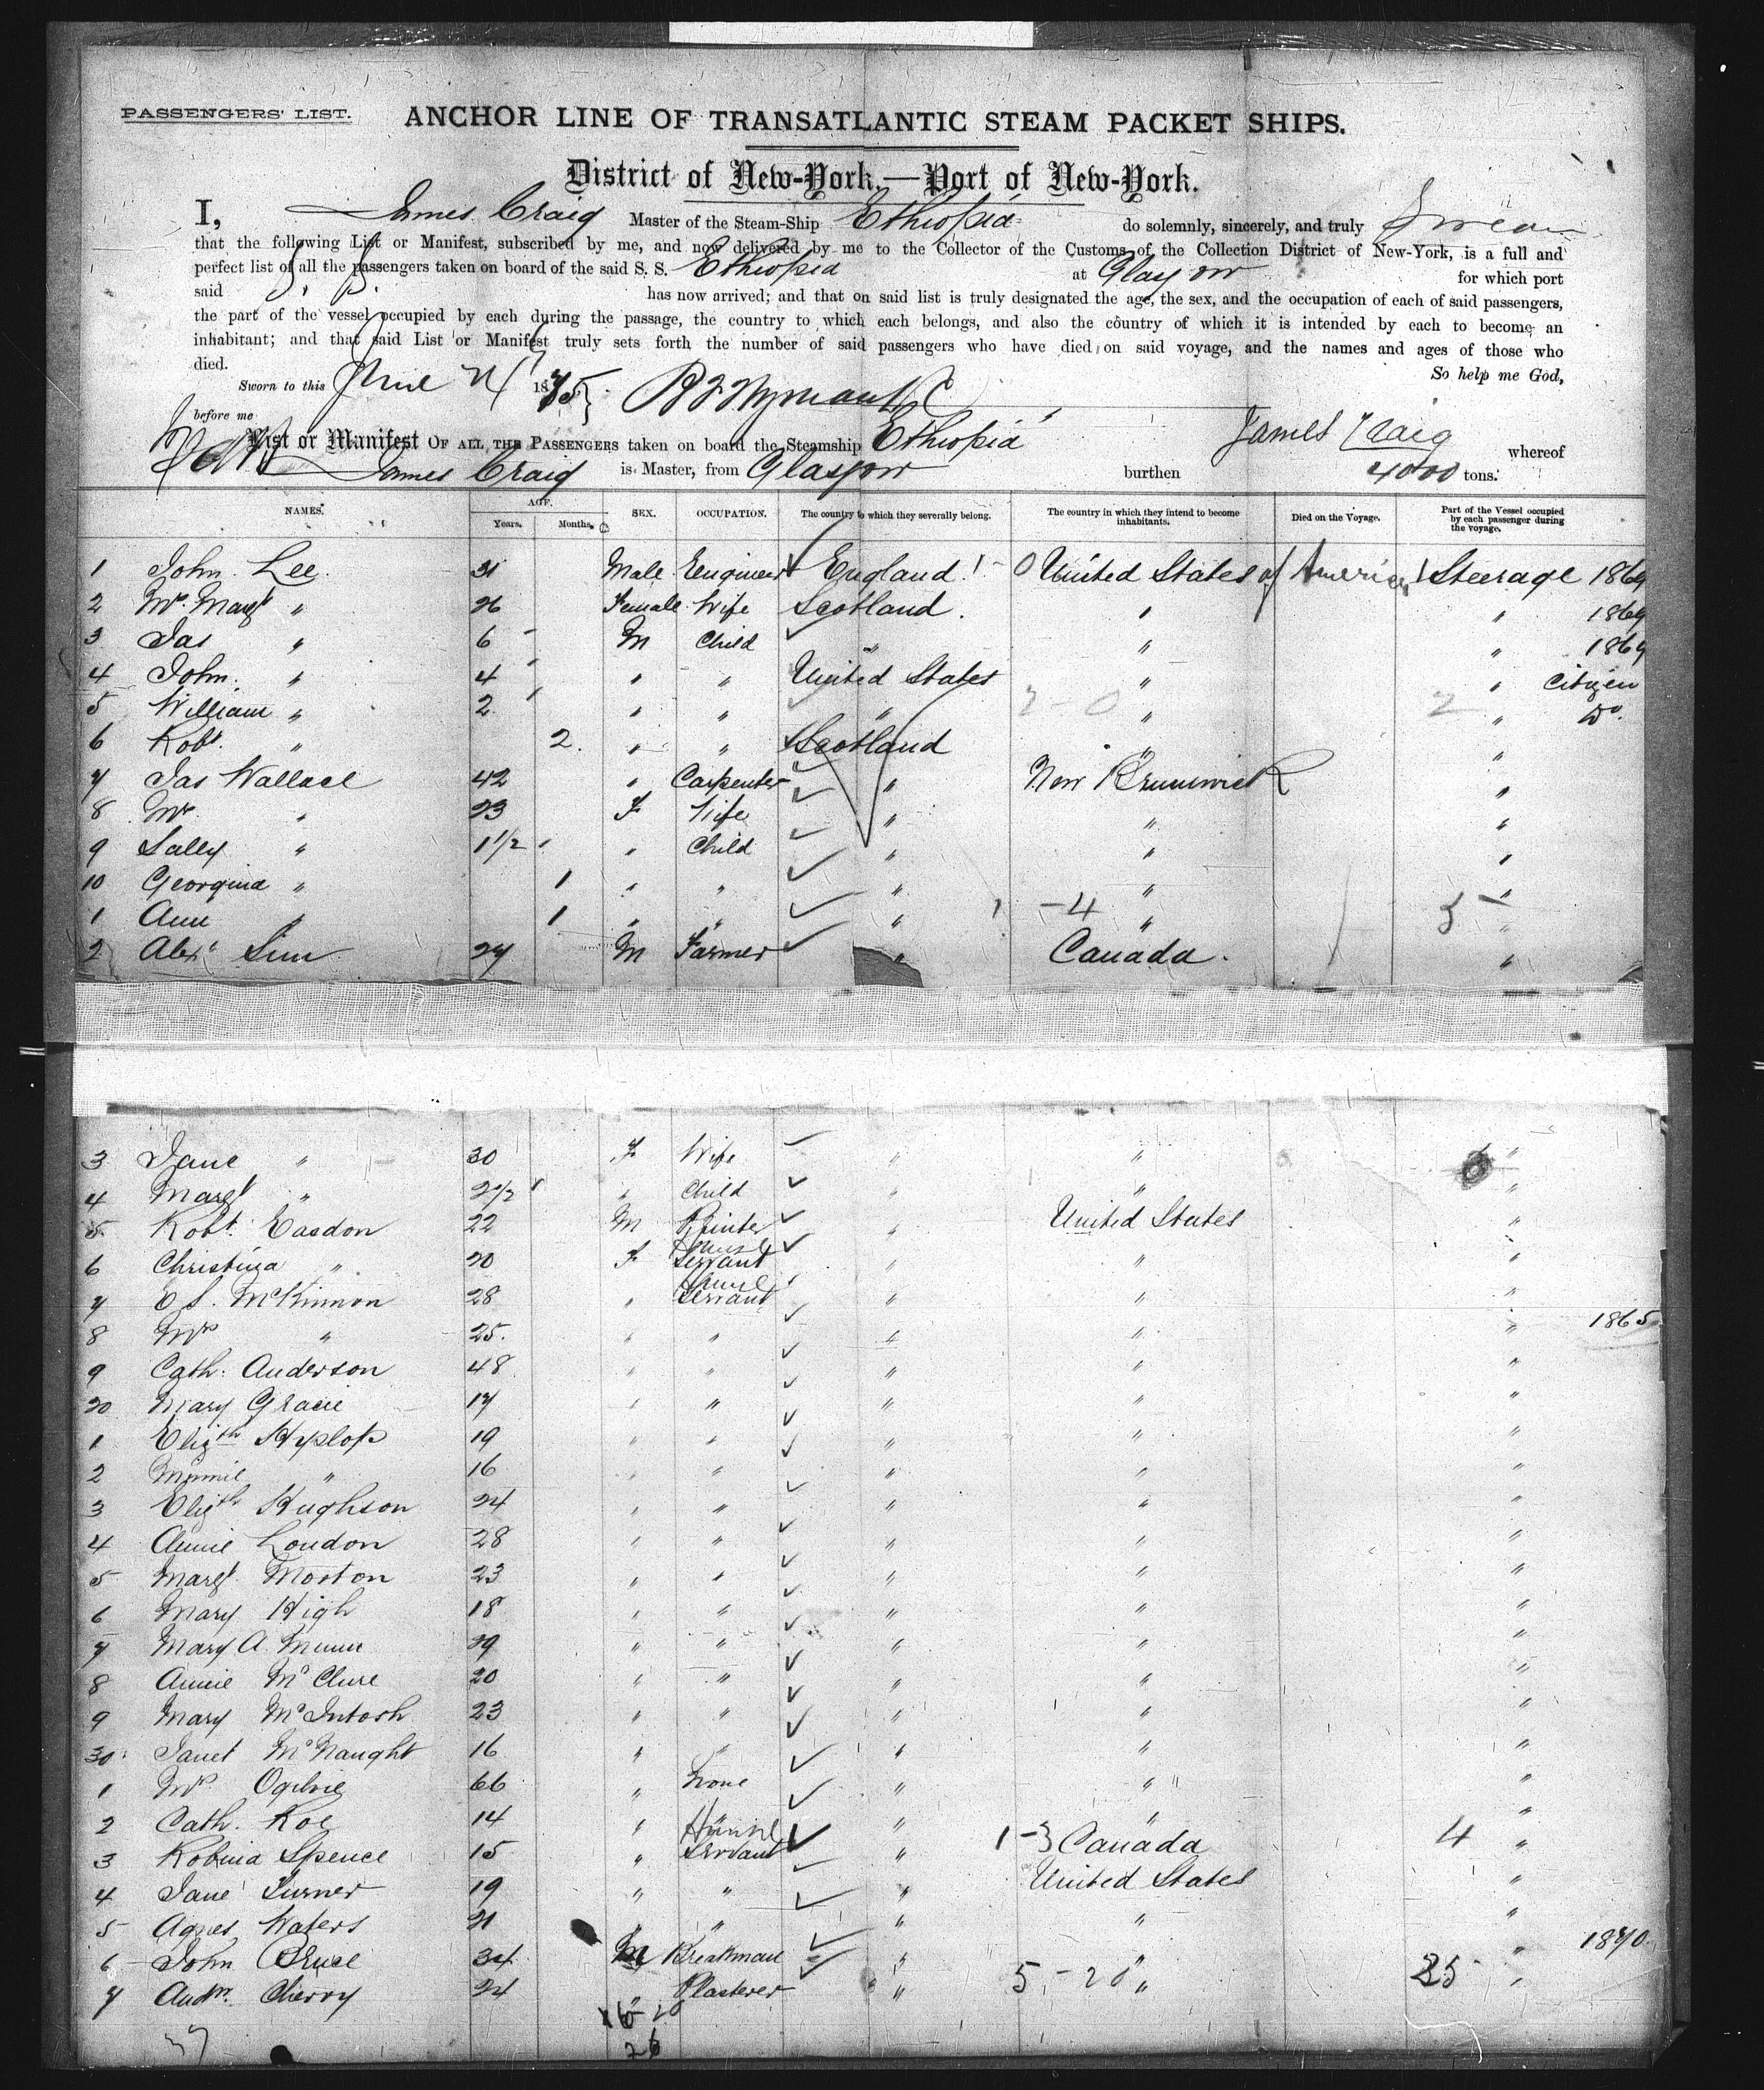 PASSENGERS' LIST.
ANCHOR LINE OF TRANSATLANTIC STEAM PACKET SHIPS.
District of New-York,—Port of New-York.
I, James Craig Master of the Steam-Ship Ethiopia do solemnly, sincerely, and truly Swear
that the following List or Manifest, subscribed by me, and now delivered by me to the Collector of the Customs of the Collection District of New-York, is a full and
perfect list of all the passengers taken on board of the said S. S. Ethiopia at Glasgow for which port
said S. S. has now arrived; and that on said list is truly designated the age, the sex, and the occupation of each of said passengers,
the part of the vessel occupied by each during the passage, the country to which each belongs, and also the country of which it is intended by each to become an
inhabitant; and that said List or Manifest truly sets forth the number of said passengers who have died on said voyage, and the names and ages of those who
died. So help me God,
Sworn to this June 24 1875
before me James Craig
List or Manifest OF ALL THE PASSENGERS taken on board the Steamship Ethiopia whereof
James Craig is Master, from Glasgow burthen 4000 tons.
NAMES. AGE. Years. Months. SEX. OCCUPATION. The country to which they severally belong. The country in which they intend to become inhabitants. Died on the Voyage. Part of the Vessel occupied by each passenger during the voyage.
1 John Lee 31 Male Engineer England 1-0 United States of America 1 Steerage 1869
2 Mrs Margt " 26 Female Wife Scotland " " 1869
3 Jas " 6 M Child " " " 1869
4 John " 4 " " United States " " Citizen
5 William " 2 " " " 2-0 " 2 " Do.
6 Robt. " 2 " " Scotland " "
7 Jas Wallace 42 " Carpenter " New Brunswick "
8 Mrs " 23 F Wife " " "
9 Sally " 1 1/2 " Child " " "
10 Georgina " 1 " " " " "
1 Ann " 1 " " " 1 -4 " 5 "
2 Alexr Sim 27 M Farmer " Canada "
3 Jane " 30 F Wife " " "
4 Margt " 2 1/2 " Child " " "
5 Robt. Easdon 22 M Printer " United States "
6 Christina " 20 F House Servant " " "
7 E S. McKinnon 28 " House Servant " " "
8 Mrs " 25 " " " " " 1865
9 Cath. Anderson 48 " " " " "
20 Mary Gracie 17 " " " " "
1 Elizth Hyslop 19 " " " " "
2 Minnie " 16 " " " " "
3 Elizth Hughson 24 " " " " "
4 Annie Loudon 28 " " " " "
5 Margt Morton 23 " " " " "
6 Mary High 18 " " " " "
7 Mary A. Munn 39 " " " " "
8 Annie McClure 20 " " " " "
9 Mary McIntosh 23 " " " " "
30 Janet McNaught 16 " " " " "
1 Mrs Ogilvie 66 " None " " "
2 Cath. Roe 14 " " " " "
3 Robina Spence 15 " House Servant " 1-3 Canada 4 "
4 Jane Turner 19 " " " United States "
5 Agnes Waters 21 " " " " "
6 John Bruce 34 M Breakman " " " 1870
7 Andw. Cherry 24 " Plasterer " 5-20 " 25 "
37
26